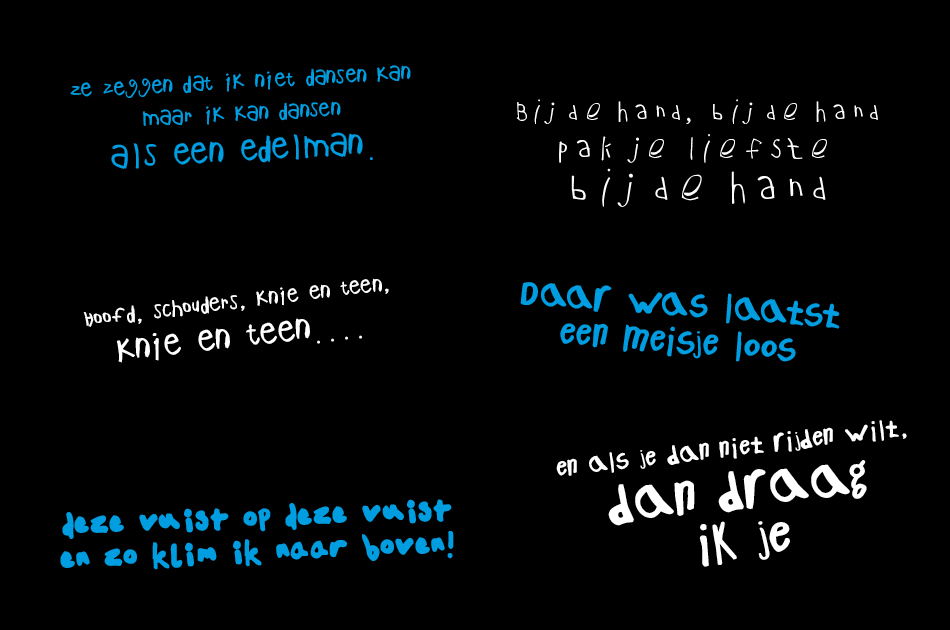 ze zeggen dat ik niet dansen kan
maar ik kan dansen
als een edelman.
Bij de hand, bij de hand
pak je liefste
bij de hand
hoofd, schouders, knie en teen,
knie en teen....
Daar was laatst
een meisje loos
deze vuist op deze vuist
en zo klim ik naar boven!
en als je dan niet rijden wilt,
dan draag
ik je